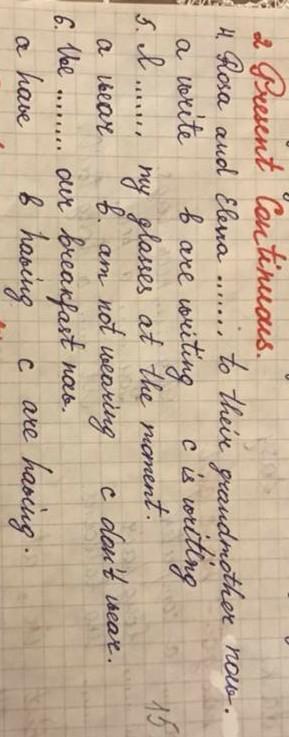 2 Present Continuous.
4. Rosa and Elena ........ to their grandmother now.
a write b are writing c is writing
5. I ....... my glasses at the moment.
a wear b. am not wearing c don't wear.
6. We ........ our breakfast now.
a have b having c are having.
15